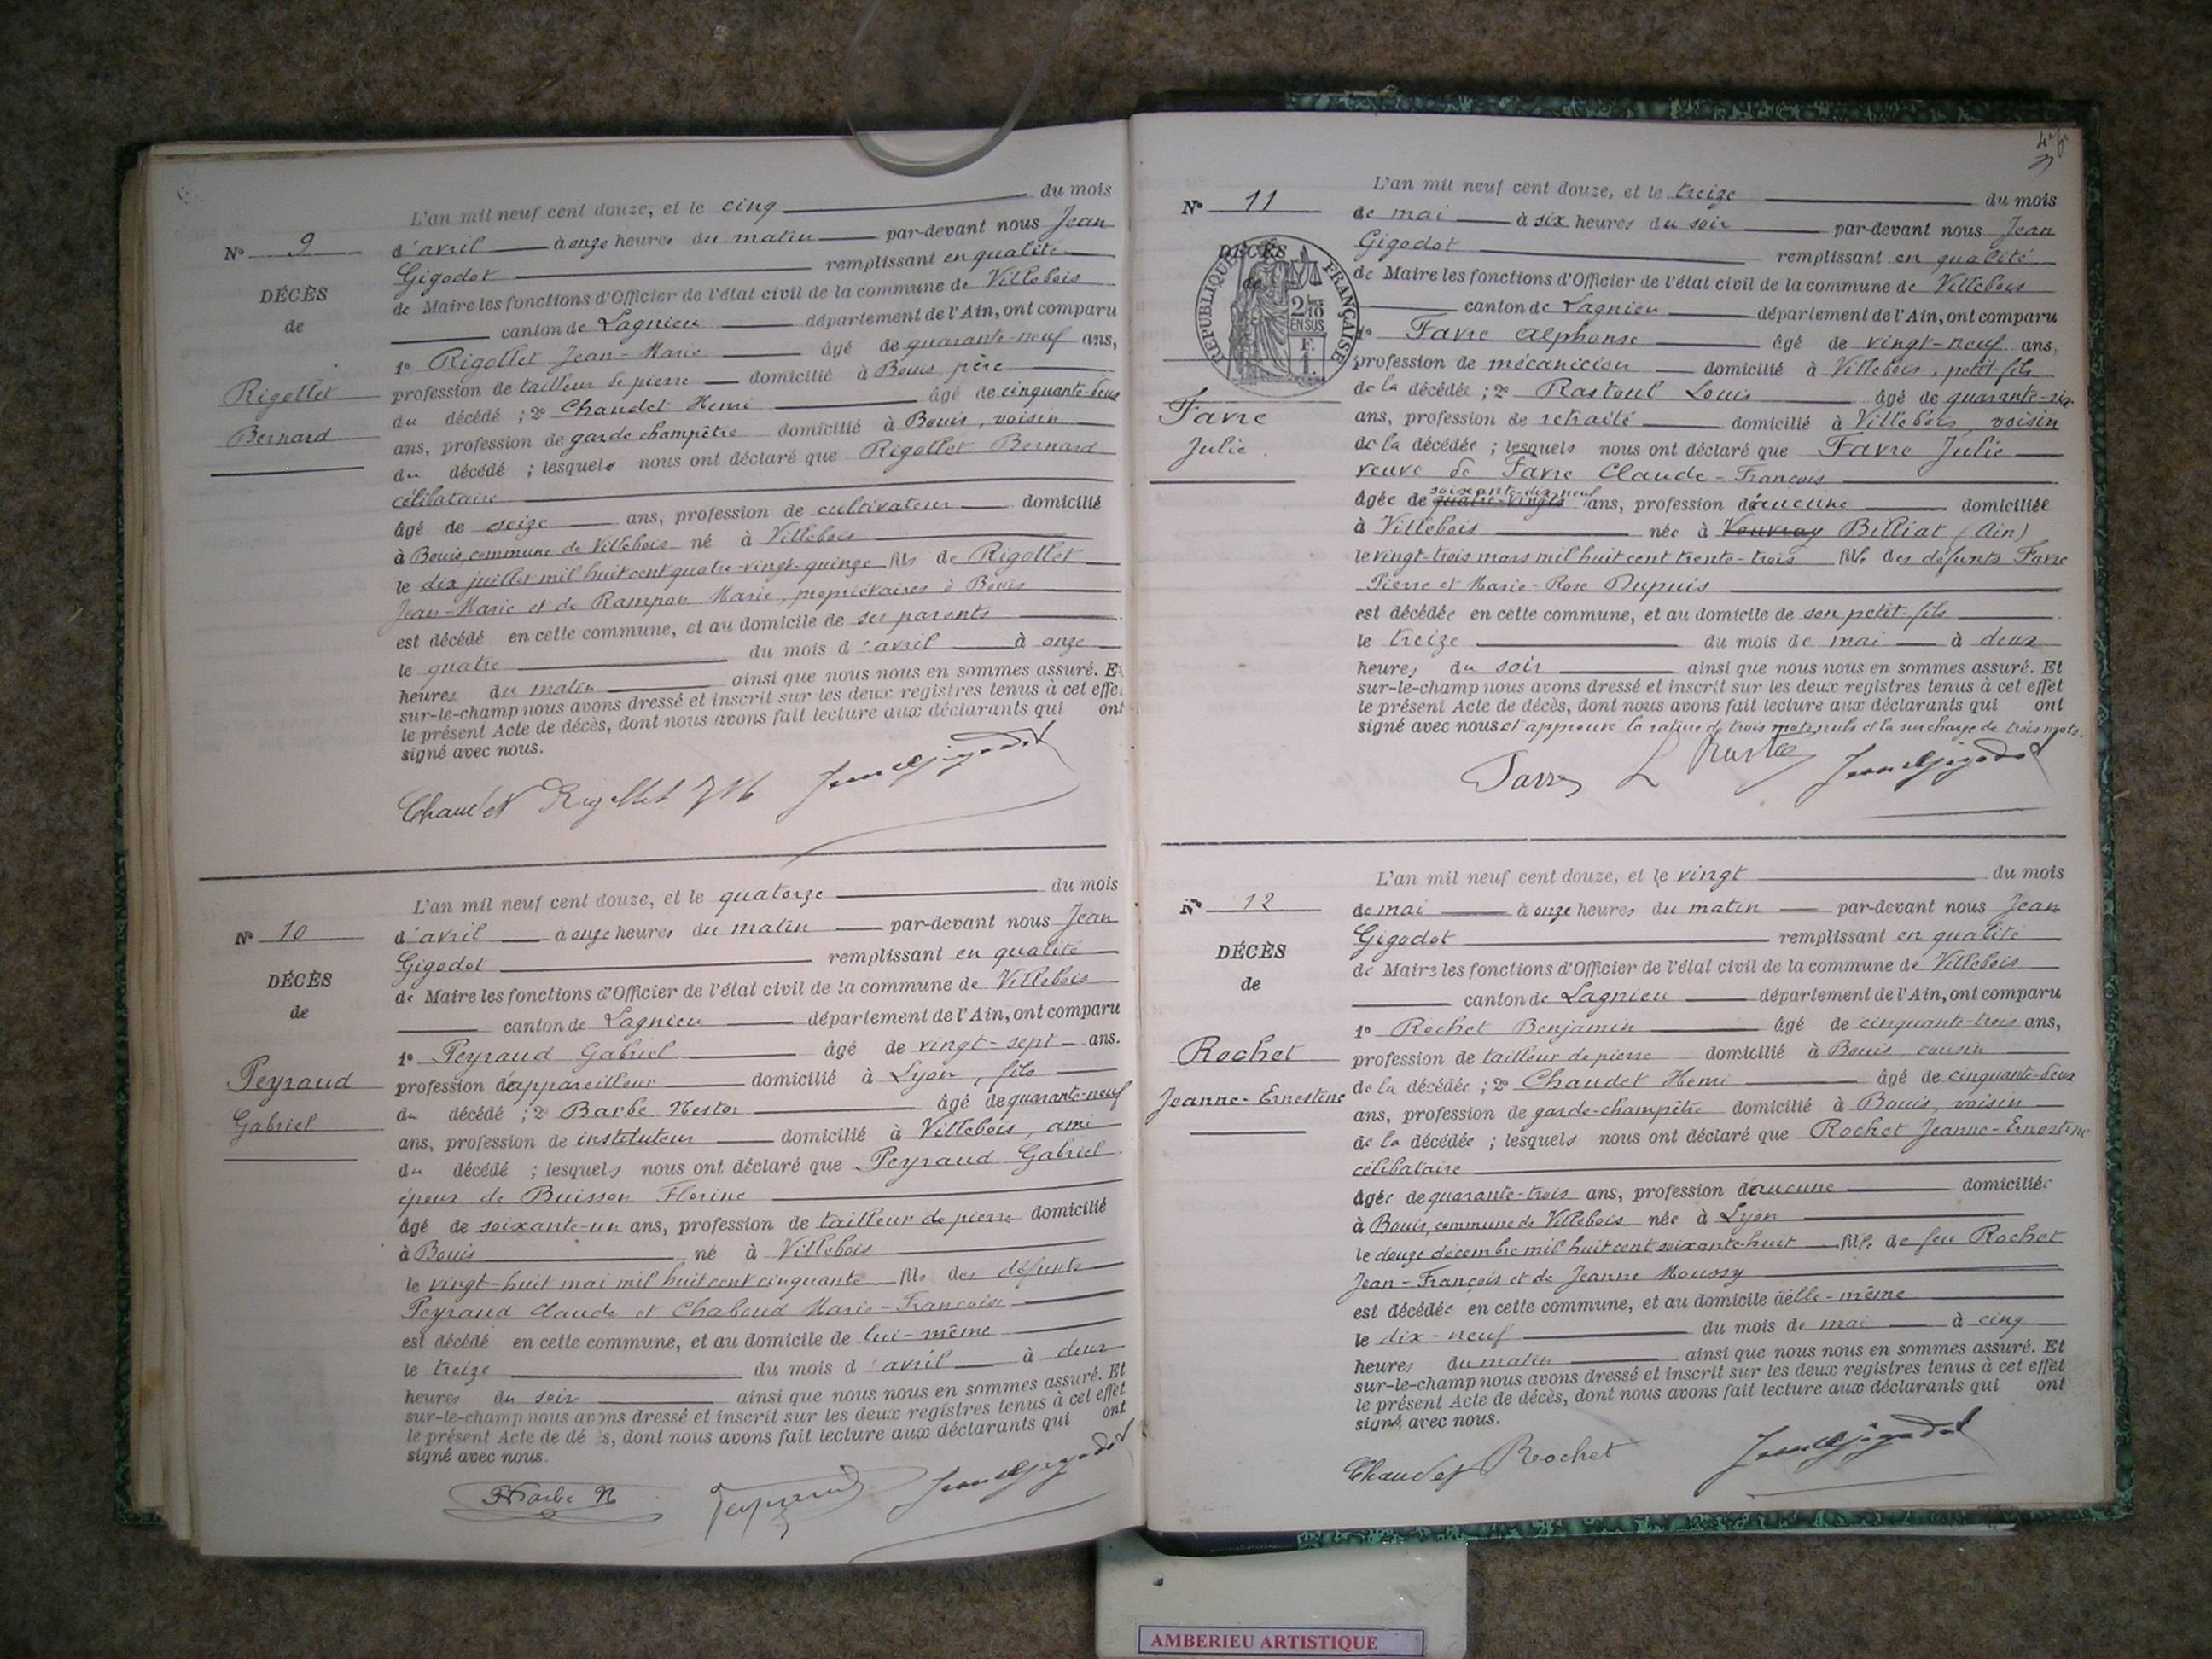 L'an mil neuf cent douze, et le cinq du mois
N° 9 d'avril à onze heures du matin par-devant nous Jean
Gigodot remplissant en qualité
DÉCÈS de Maire les fonctions d'Officier de l'état civil de la commune de Villebois
de canton de Lagnieu département de l'Ain, ont comparu
1° Rigollet Jean-Marie âgé de quarante-neuf ans,
Rigollet profession de tailleur de pierre domicilié à Bouis, père
du décédé ; 2° Chaudet Henri âgé de cinquante-deux
Bernard ans, profession de garde champêtre domicilié à Bouis, voisin
du décédé ; lesquels nous ont déclaré que Rigollet Bernard
célibataire
âgé de seize ans, profession de cultivateur domicilié
à Bouis, commune de Villebois né à Villebois
le dix juillet mil huit cent quatre-vingt-quinze fils de Rigollet
Jean-Marie et de Rampon Marie, propriétaires à Bouis
est décédé en cette commune, et au domicile de ses parents
le quatre du mois d'avril à onze
heures du matin ainsi que nous nous en sommes assuré. Et
sur-le-champ nous avons dressé et inscrit sur les deux registres tenus à cet effet
le présent Acte de décès, dont nous avons fait lecture aux déclarants qui ont
signé avec nous.
Chaudet Rigollet Jean Gigodot
L'an mil neuf cent douze, et le quatorze du mois
N° 10 d'avril à onze heures du matin par-devant nous Jean
Gigodot remplissant en qualité
DÉCÈS de Maire les fonctions d'Officier de l'état civil de la commune de Villebois
de canton de Lagnieu département de l'Ain, ont comparu
1° Peyraud Gabriel âgé de vingt-sept ans.
Peyraud profession d'appareilleur domicilié à Lyon, fils
du décédé ; 2° Barbe Nestor âgé de quarante-neuf
Gabriel ans, profession de instituteur domicilié à Villebois, ami
du décédé ; lesquels nous ont déclaré que Peyraud Gabriel
époux de Buisson Florine
âgé de soixante-un ans, profession de tailleur de pierre domicilié
à Bouis né à Villebois
le vingt-huit mai mil huit cent cinquante fils des défunts
Peyraud Claude et Chaboud Marie-Françoise
est décédé en cette commune, et au domicile de lui-même
le treize du mois d'avril à deux
heures du soir ainsi que nous nous en sommes assuré. Et
sur-le-champ nous avons dressé et inscrit sur les deux registres tenus à cet effet
le présent Acte de dé s, dont nous avons fait lecture aux déclarants qui ont
signé avec nous.
Barbe N Peyraud Jean Gigodot
L'an mil neuf cent douze, et le treize du mois
N° 11 de mai à six heures du soir par-devant nous Jean
Gigodot remplissant en qualité
DÉCÈS de Maire les fonctions d'Officier de l'état civil de la commune de Villebois
de canton de Lagnieu département de l'Ain, ont comparu
RÉPUBLIQUE FRANÇAISE
2/10 EN SUS
F. 1.
1° Favre Alphonse âgé de vingt-neuf ans,
profession de mécanicien domicilié à Villebois, petit-fils
de la décédée ; 2° Rastoul Louis âgé de quarante-six
Favre ans, profession de retraité domicilié à Villebois, voisin
Julie de la décédée ; lesquels nous ont déclaré que Favre Julie
veuve de Favre Claude-François
soixante-dix-neuf
âgée de quatre-vingts ans, profession d'aucune domiciliée
à Villebois née à Vouvray Billiat (Ain)
le vingt-trois mars mil huit cent trente-trois fille des défunts Favre
Pierre et Marie-Rose Dupuis
est décédée en cette commune, et au domicile de son petit-fils
le treize du mois de mai à deux
heures du soir ainsi que nous nous en sommes assuré. Et
sur-le-champ nous avons dressé et inscrit sur les deux registres tenus à cet effet
le présent Acte de décès, dont nous avons fait lecture aux déclarants qui ont
signé avec nous et approuvé la rature de trois mots nuls et la surcharge de trois mots.
Favre L Jean Gigodot
L'an mil neuf cent douze, et le vingt du mois
N° 12 de mai à onze heures du matin par-devant nous Jean
Gigodot remplissant en qualité
DÉCÈS de Maire les fonctions d'Officier de l'état civil de la commune de Villebois
de canton de Lagnieu département de l'Ain, ont comparu
1° Rochet Benjamin âgé de cinquante-trois ans,
Rochet profession de tailleur de pierre domicilié à Bouis, cousin
de la décédée ; 2° Chaudet Henri âgé de cinquante-deux
Jeanne-Ernestine ans, profession de garde-champêtre domicilié à Bouis, voisin
de la décédée ; lesquels nous ont déclaré que Rochet Jeanne-Ernestine
célibataire
âgée de quarante-trois ans, profession d'aucune domiciliée
à Bouis, commune de Villebois née à Lyon
le douze décembre mil huit cent soixante-huit fille de feu Rochet
Jean-François et de Jeanne Moussy
est décédée en cette commune, et au domicile d'elle-même
le dix-neuf du mois de mai à cinq
heures du matin ainsi que nous nous en sommes assuré. Et
sur-le-champ nous avons dressé et inscrit sur les deux registres tenus à cet effet
le présent Acte de décès, dont nous avons fait lecture aux déclarants qui ont
signé avec nous.
Chaudet Rochet Jean Gigodot
AMBERIEU ARTISTIQUE